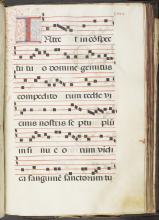 Intret in cōspec
tu tuo domine gemitus
compeditorum redde vi
cinis nostris septuplū
in sinu eorum vindi
ca sanguinē sanctorum tu